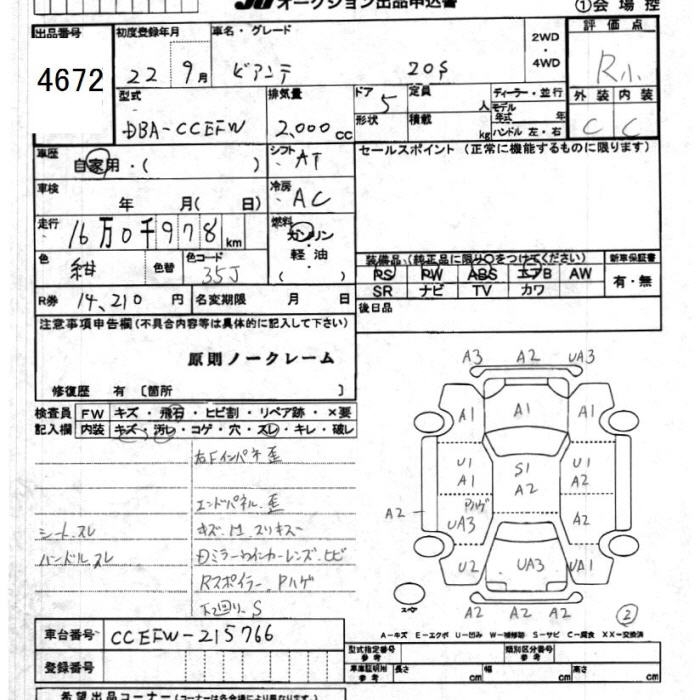 オークション出品申込書
①会場控
出品番号 4672
初度登録年月 22 9月
車名・グレード ビアンテ 20S
2WD・4WD
評価点 R小
型式 DBA-CCEFW
排気量 2,000 CC
ドア 5
形状
定員 人
積載 kg
ディーラー・並行
モデル年式 年
ハンドル 左・右
外装 内装
C C
車歴 自家用・( )
シフト AT
セールスポイント (正常に機能するものに限ります)
車検 年 月( 日)
冷房 AC
走行 16万0千978km
燃料 ガソリン 軽油・( )
色 紺 色替
色コード 35J
装備品(純正品に限り○をつけてください) 新車保証書
PS PW ABS エアB AW 有・無
SR ナビ TV カワ
R券 14,210円 名変期限 月 日
後日品
注意事項申告欄(不具合内容等は具体的に記入して下さい)
原則ノークレーム
修復歴 有 〔箇所 〕
検査員 FW キズ・飛石・ヒビ割・リペア跡・×要
記入欄 内装 キズ・汚レ・コゲ・穴・スレ・キレ・破レ
右Fインパネ歪
エンドパネル歪
シート、スレ
ハンドルスレ
Rスポイラー、Pハゲ
下回り、S
A3 A2 UA3
A1 A1 A1
U1 A1 S1 A2 U1 A2
A2 Pハゲ UA3 A2
U2 UA3 UA1
A2 A2 A2
スペア
②
A-キズ E-エクボ U-凹み W-補修跡 S-サビ C-腐食 XX-交換済
車台番号 CCEFW-215766
登録番号
型式指定番号 参考 類別区分番号 参考
車庫証明用 参考 長さ cm 幅 cm 高さ cm
希望出品コーナー(コーナーは各会場により異なります。)